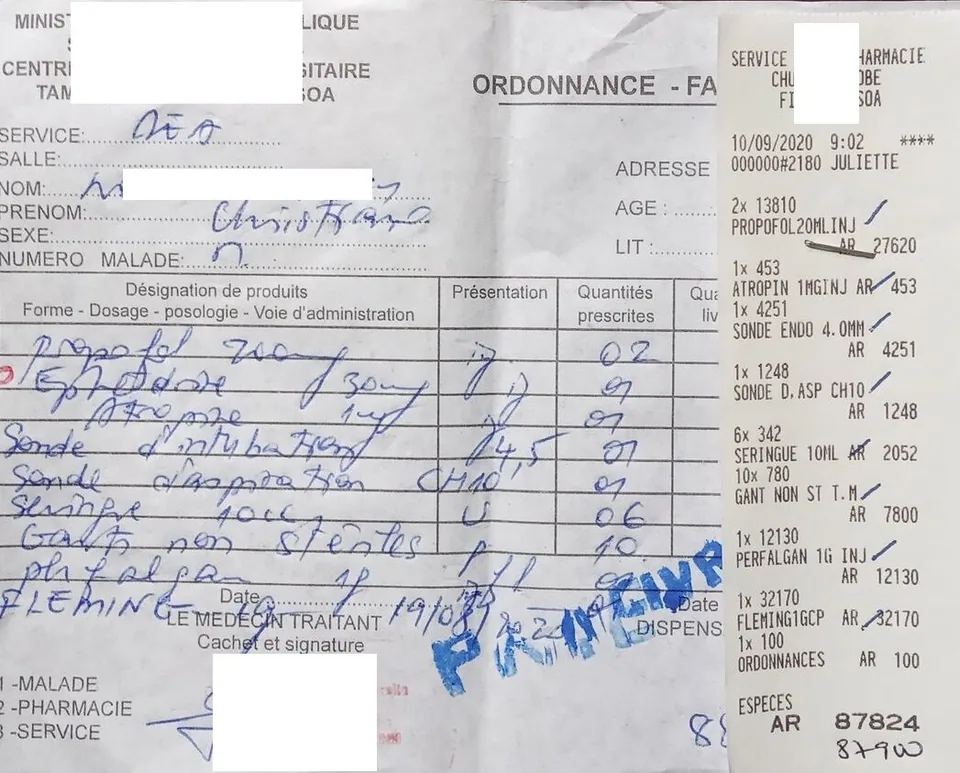 MINIST LIQUE
S
CENTR SITAIRE
TAM SOA
ORDONNANCE - FA
SERVICE:
SALLE:
NOM:
PRENOM:
SEXE:
NUMERO MALADE:
ADRESSE
AGE :
LIT :
Désignation de produits
Forme - Dosage - posologie - Voie d'administration
Présentation
Quantités
prescrites
Qua
liv
Propofol 200mg 02
Ephedrine 30mg 01
Atropine 1mg 01
Sonde d'intubation 4,5 01
Sonde d'aspiration CH10 01
Seringue 10cc U 06
Gants non stériles 10
phrfalgan
FLEMING
Date
LE MEDECIN TRAITANT
Cachet et signature
Date
DISPENS
1 -MALADE
2 -PHARMACIE
3 -SERVICE
SERVICE HARMACIE
CHU OBE
FI SOA
10/09/2020 9:02 ****
000000#2180 JULIETTE
2x 13810
PROPOFOL20MLINJ
AR 27620
1x 453
ATROPIN 1MGINJ AR 453
1x 4251
SONDE ENDO 4.0MM
AR 4251
1x 1248
SONDE D.ASP CH10
AR 1248
6x 342
SERINGUE 10ML AR 2052
10x 780
GANT NON ST T.M
AR 7800
1x 12130
PERFALGAN 1G INJ
AR 12130
1x 32170
FLEMING1GCP AR 32170
1x 100
ORDONNANCES AR 100
ESPECES
AR 87824
87900